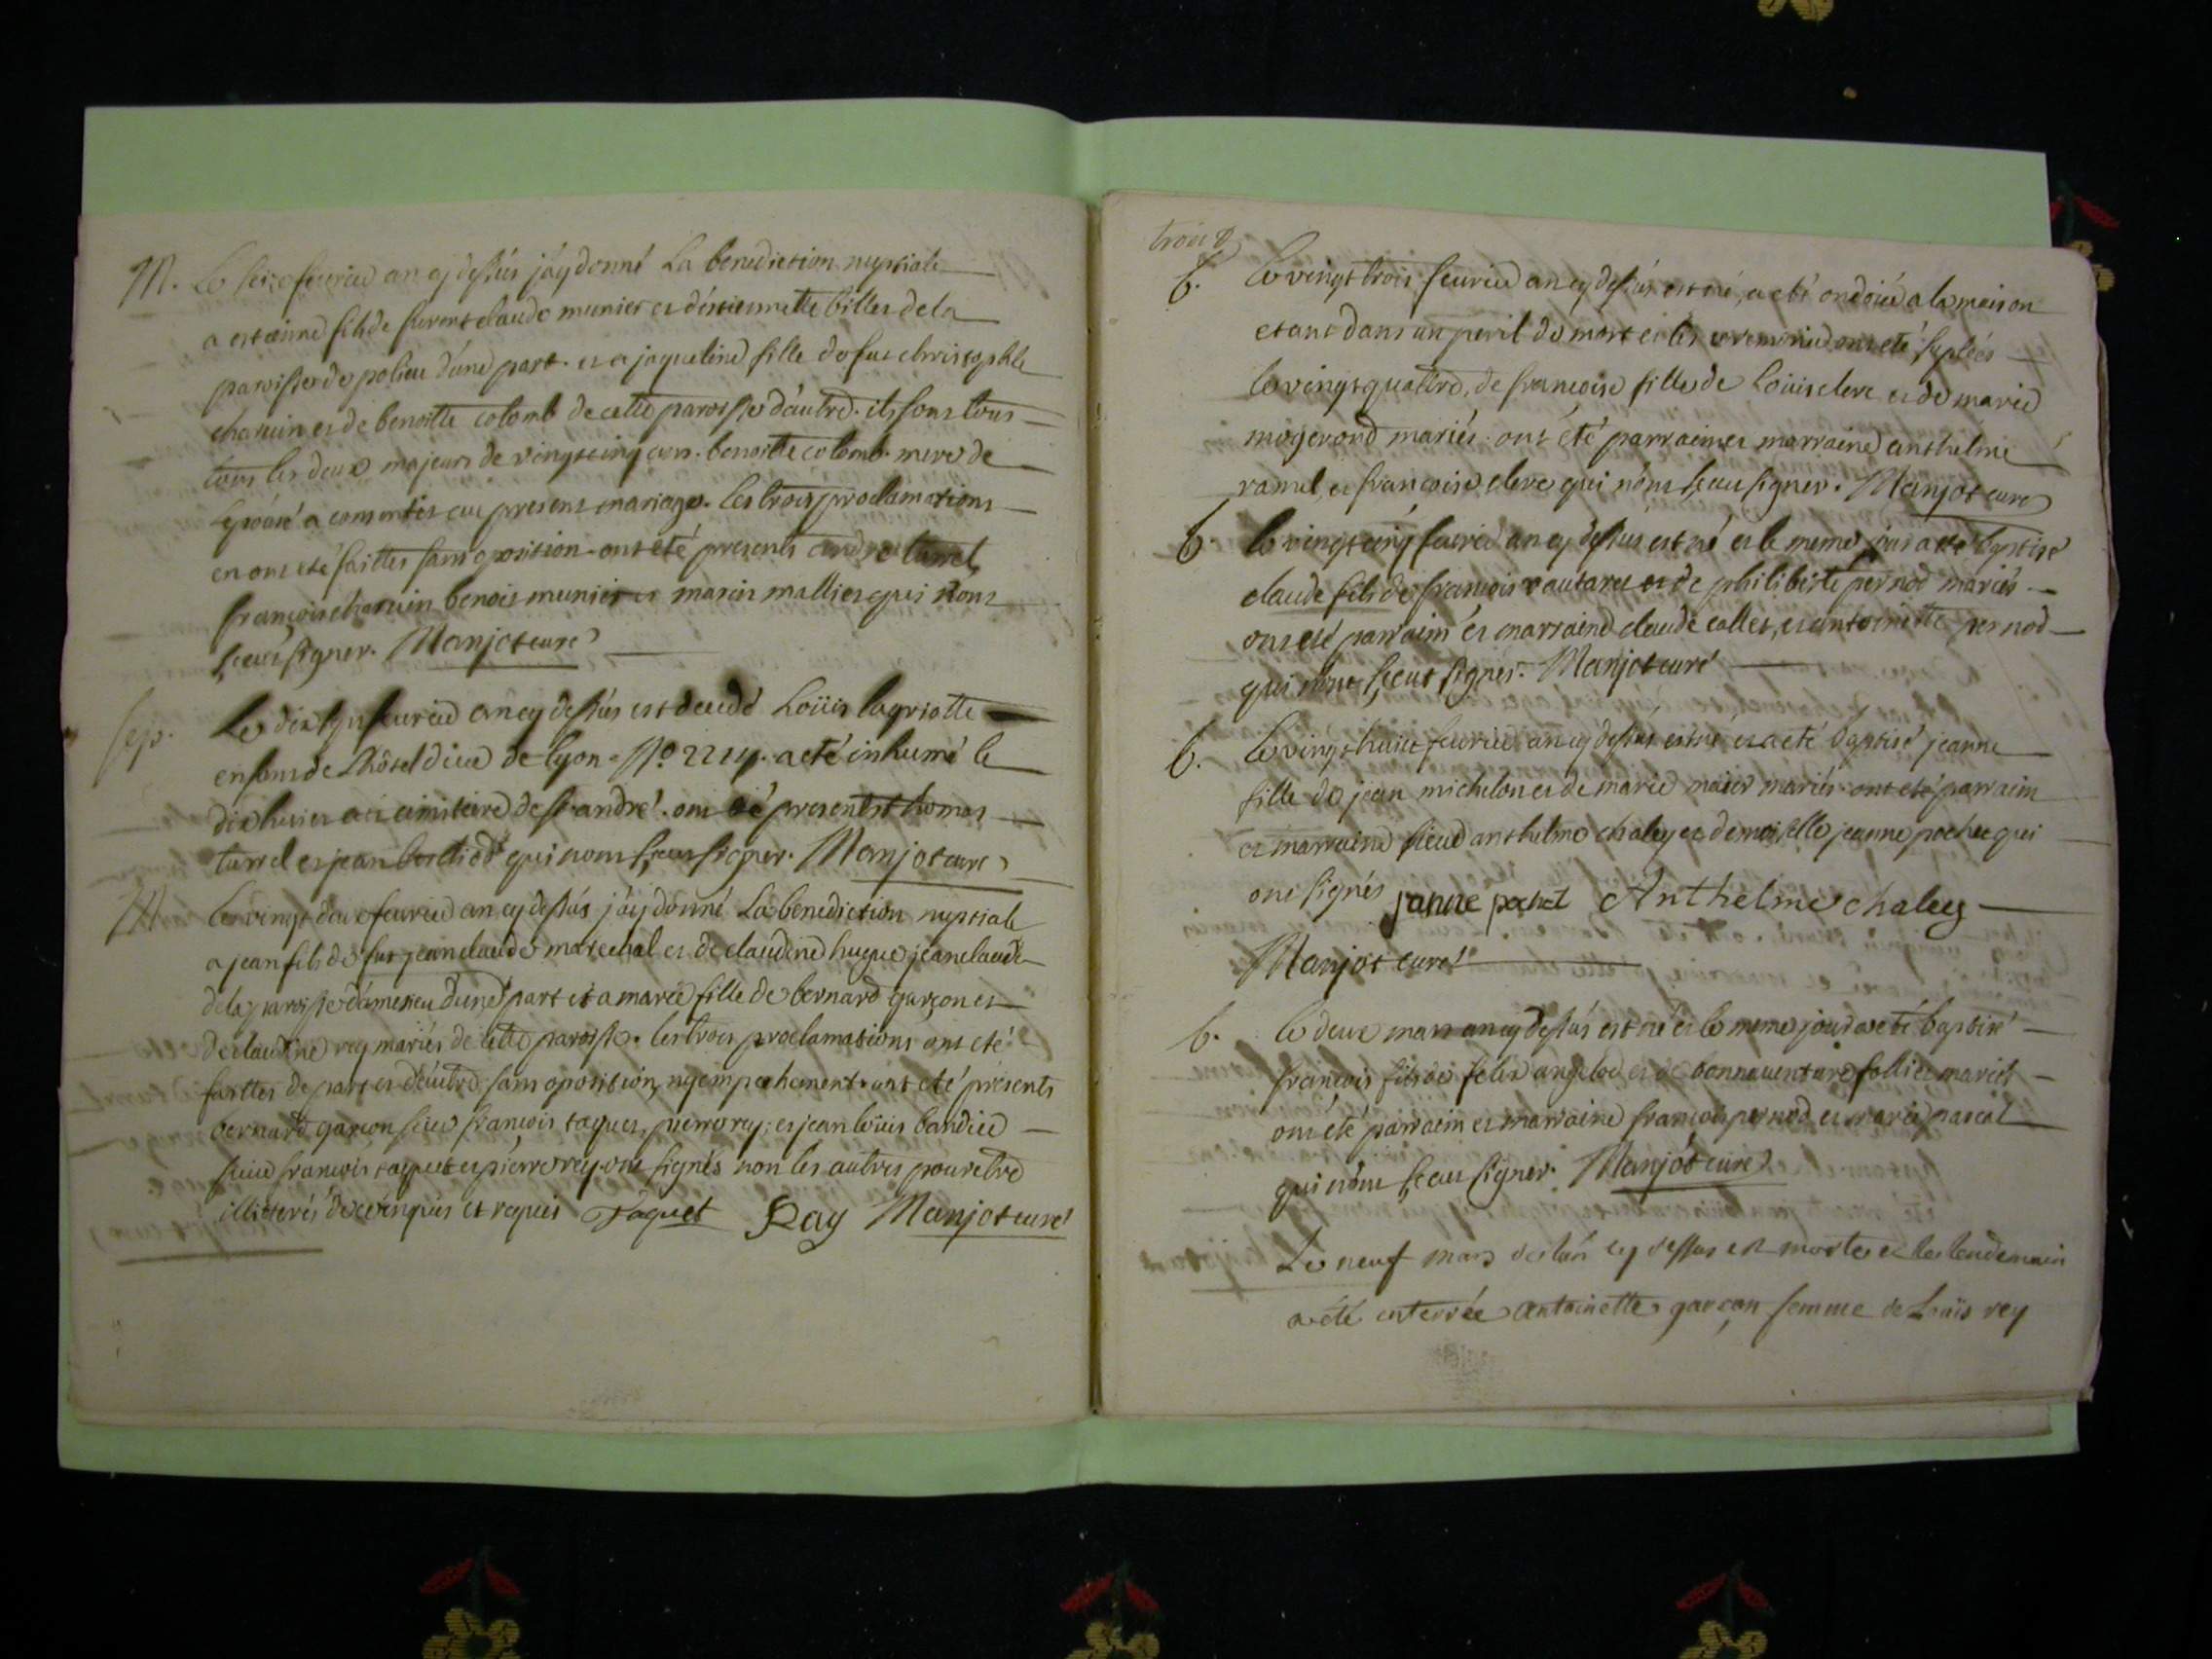 M. Le seize feurier an cy dessus j'ay donné La benediction nuptiale
a estienne fils de furent claude munier et d'estiennette billet de la
paroisse de polieu d'une part. et a jaqueline fille de fut christophle
charuin et de benoitte colomb de cette paroisse d'autre. ils sont tous
tous les deux majeurs de vingt cinq ans. benoitte colomb mere de
l'epouse a consentis au present mariage. les trois proclamations
en ont eté faittes sans oposition. ont eté presents andre turrel,
françois charuin benois munier et marin mallier qui n'ont
sceus signer. Manjot curé
sep. Le dix sept feurier an cy dessus est decedé Loüis lagriotte
enfant de L'hôtel dieu de lyon. No 2214. a eté inhumé le
dix huit au cimitiere de st andré. ont eté presents thomas
turrel et jean qui n'ont sceus signer. Manjot curé
M Le vingt deux feurier an cy dessus j'ay donné La benediction nuptiale
a jean fils de fut jeanclaude marechal et de claudine hugue jeanclaude
de la paroisse d'ameisieu d'une part et a marie fille de bernard garçon et
de claudine rey mariés de cette paroisse. les trois proclamations ont eté
faittes de part et d'autre sans oposition, ny empechement. ont eté presents
bernard garçon sieur françois taquet, pierre rey; et jean loüis bandier
sieur françois taquet et pierre rey ont signés non les autres pour etre
illitterés de ce enquis et requis Taquet Ray Manjot curé
trois
b. Le vingt trois feurier an cy dessus est né, a eté ondoié a la maison
etant dans un peril de mort et les ceremonies ont eté supleés
le vingt quattre, de françoise fille de Loüis clerc et de marie
mogerond mariés. ont été parrain et marraine anthelme
ramel, et françoise clerc qui n'ont sceus signer. Manjot curé
b. Le vingt cinq feurier an cy dessus est né et le meme jour a eté baptisé
claude fils de françois vautaret et de philiberte pernod mariés
ont eté parrain et marraine claude callet, et antoinette pernod
qui n'ont sceus signer. Manjot curé
b. Le vingt huit feurier an cy dessus est né et a eté baptisé jeanne
fille de jean michelon et de marie maier mariés. ont eté parrain
et marraine sieur anthelme chaley et demoiselle jeanne pochet qui
ont signés janne pochet Anthelme chaley
Manjot curé
b. Le deux mars an cy dessus est né et le meme jour a eté baptisé
françois fils de felix angelod et de bonneuenture follier mariés
ont été parrain et marraine françois pernod et marie pascal
qui n'ont sceus signer. Manjot curé
Le neuf mars de l'an cy dessus est morte et le lendemain
a été enterrée antoinette garçon femme de Louis rey